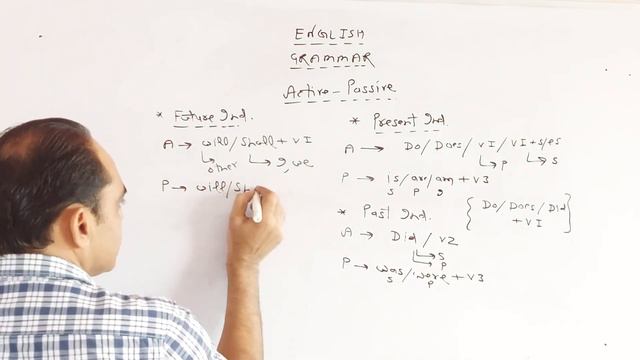 ENGLISH
GRAMMAR
Active - Passive
* Future Ind.
A → will/shall + VI
other I, we
P → will/sh
* Present Ind.
A → Do/Does/VI/VI+s/es
P S
P → is/are/am + V3
S P I
* Past Ind.
{ Do/Does/Did + VI }
A → Did/V2
S
P
P → was/were + V3
S P